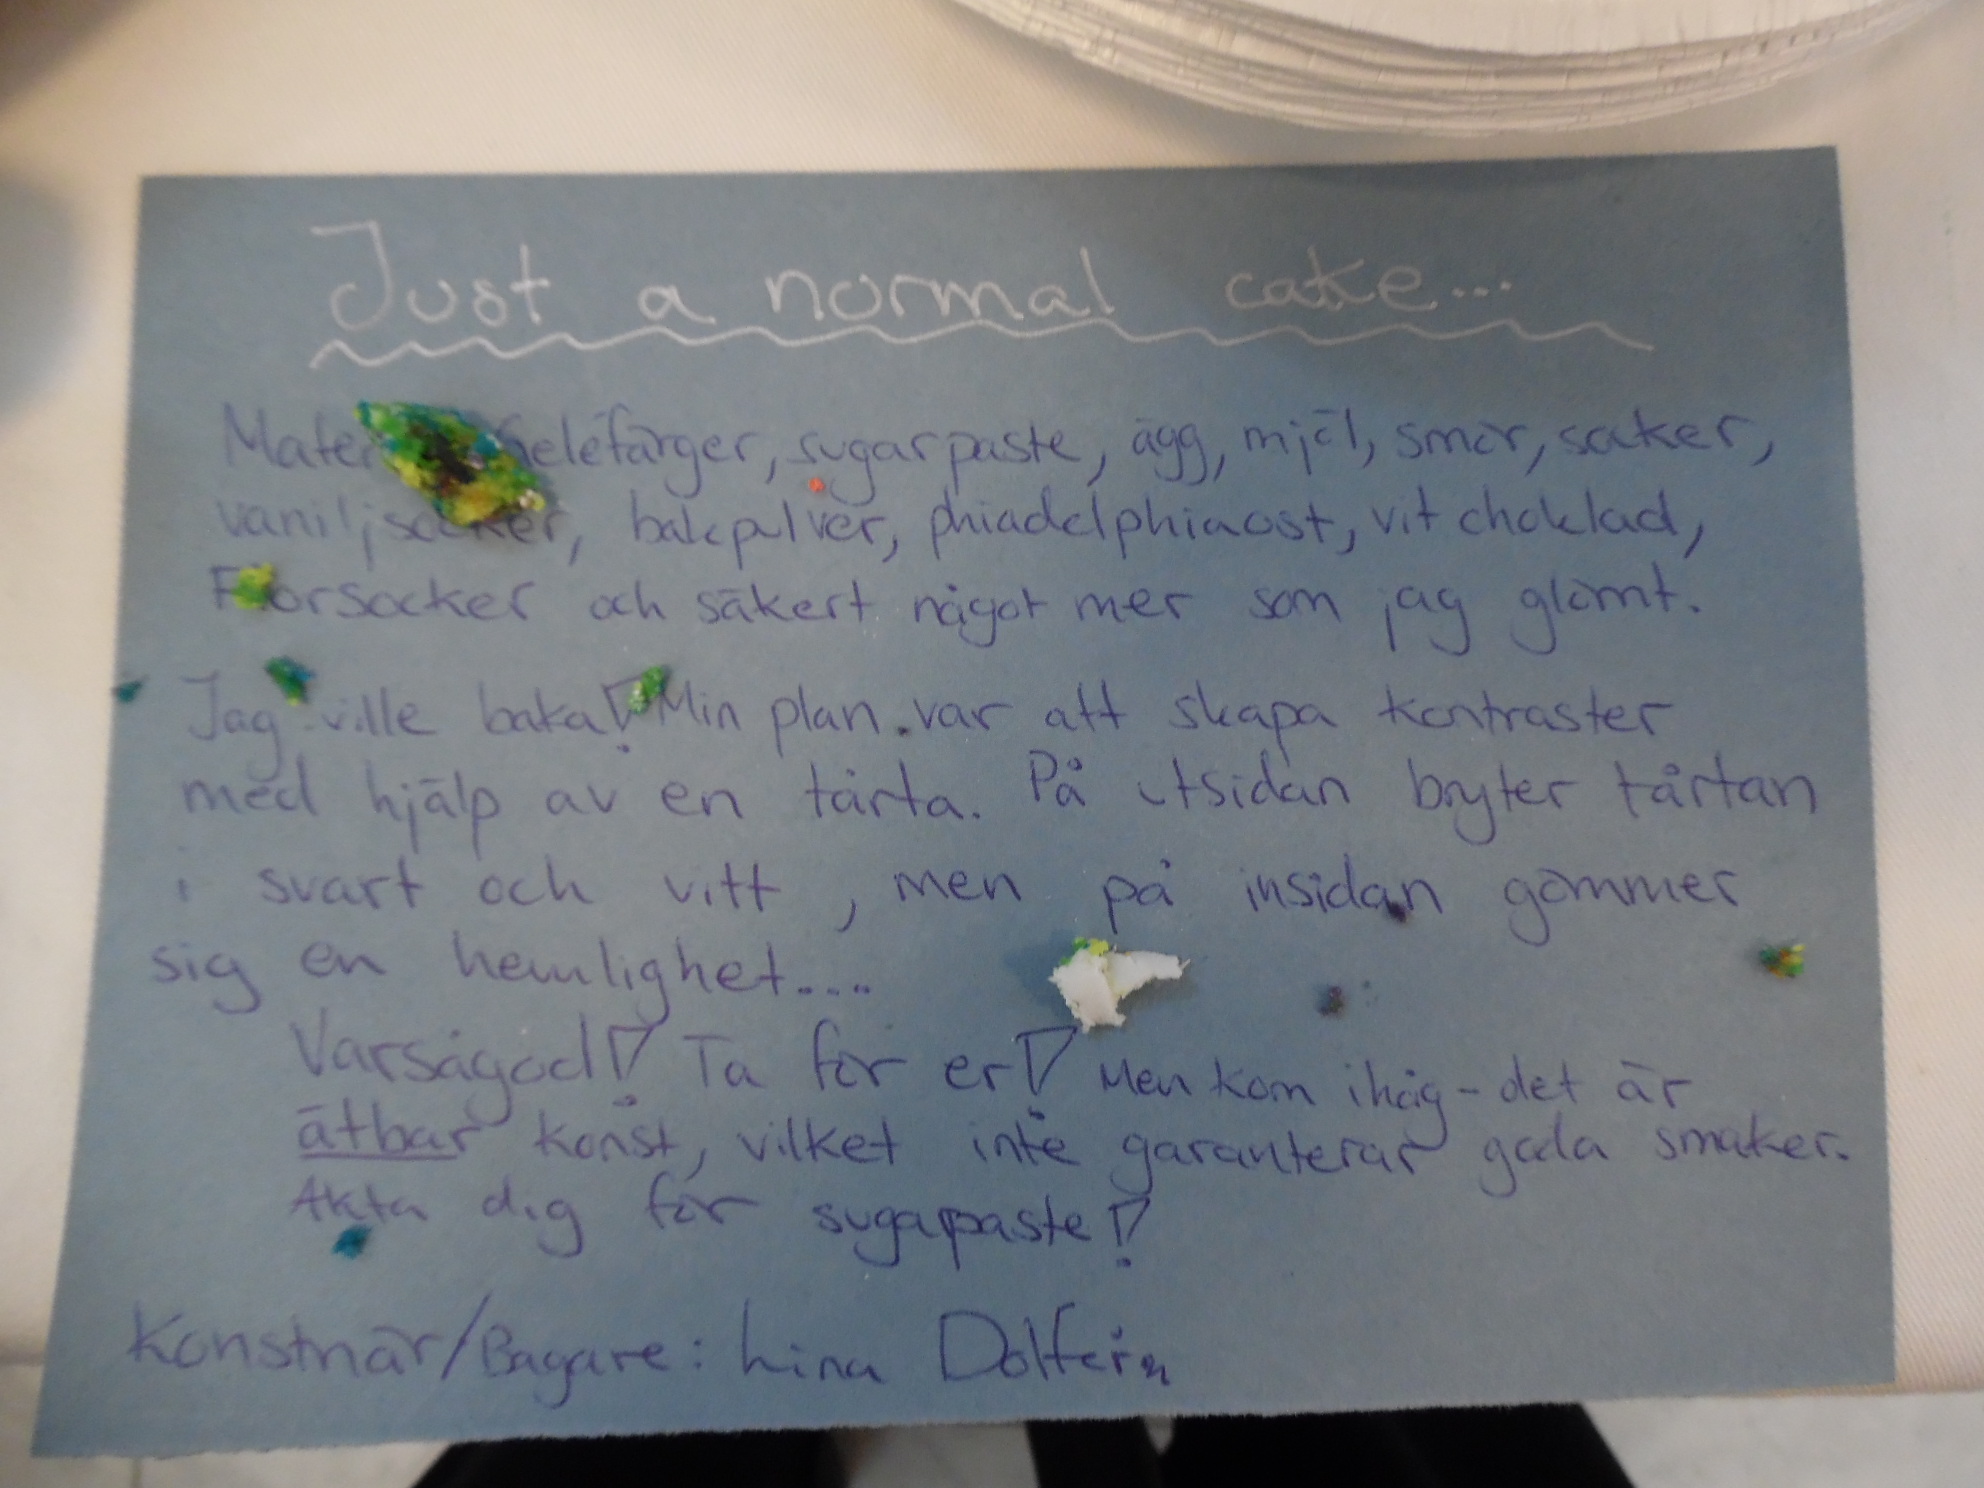 Just a normal cake...
Mater Geléfärger, sugarpaste, ägg, mjöl, smör, socker,
vaniljsocker, bakpulver, phiadelphiaost, vit choklad,
Florsocker och säkert något mer som jag glömt.
Jag ville baka! Min plan var att skapa kontraster
med hjälp av en tårta. På utsidan bryter tårtan
i svart och vitt, men på insidan gömmer
sig en hemlighet....
Varsågod! Ta för er! Men kom ihåg - det är
ätbar konst, vilket inte garanterar goda smaker.
Akta dig för sugarpaste!
Konstnär/Bagare: Lina